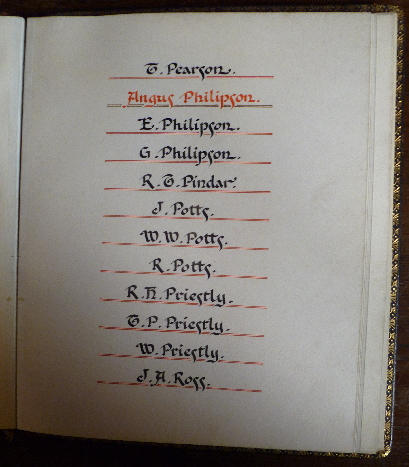 T. Pearson.
Angus Philipson.
E. Philipson.
G. Philipson.
R. T. Pindar.
J. Potts.
W. W. Potts.
R. Potts.
R. H. Priestly.
T. P. Priestly.
W. Priestly.
J. A. Ross.